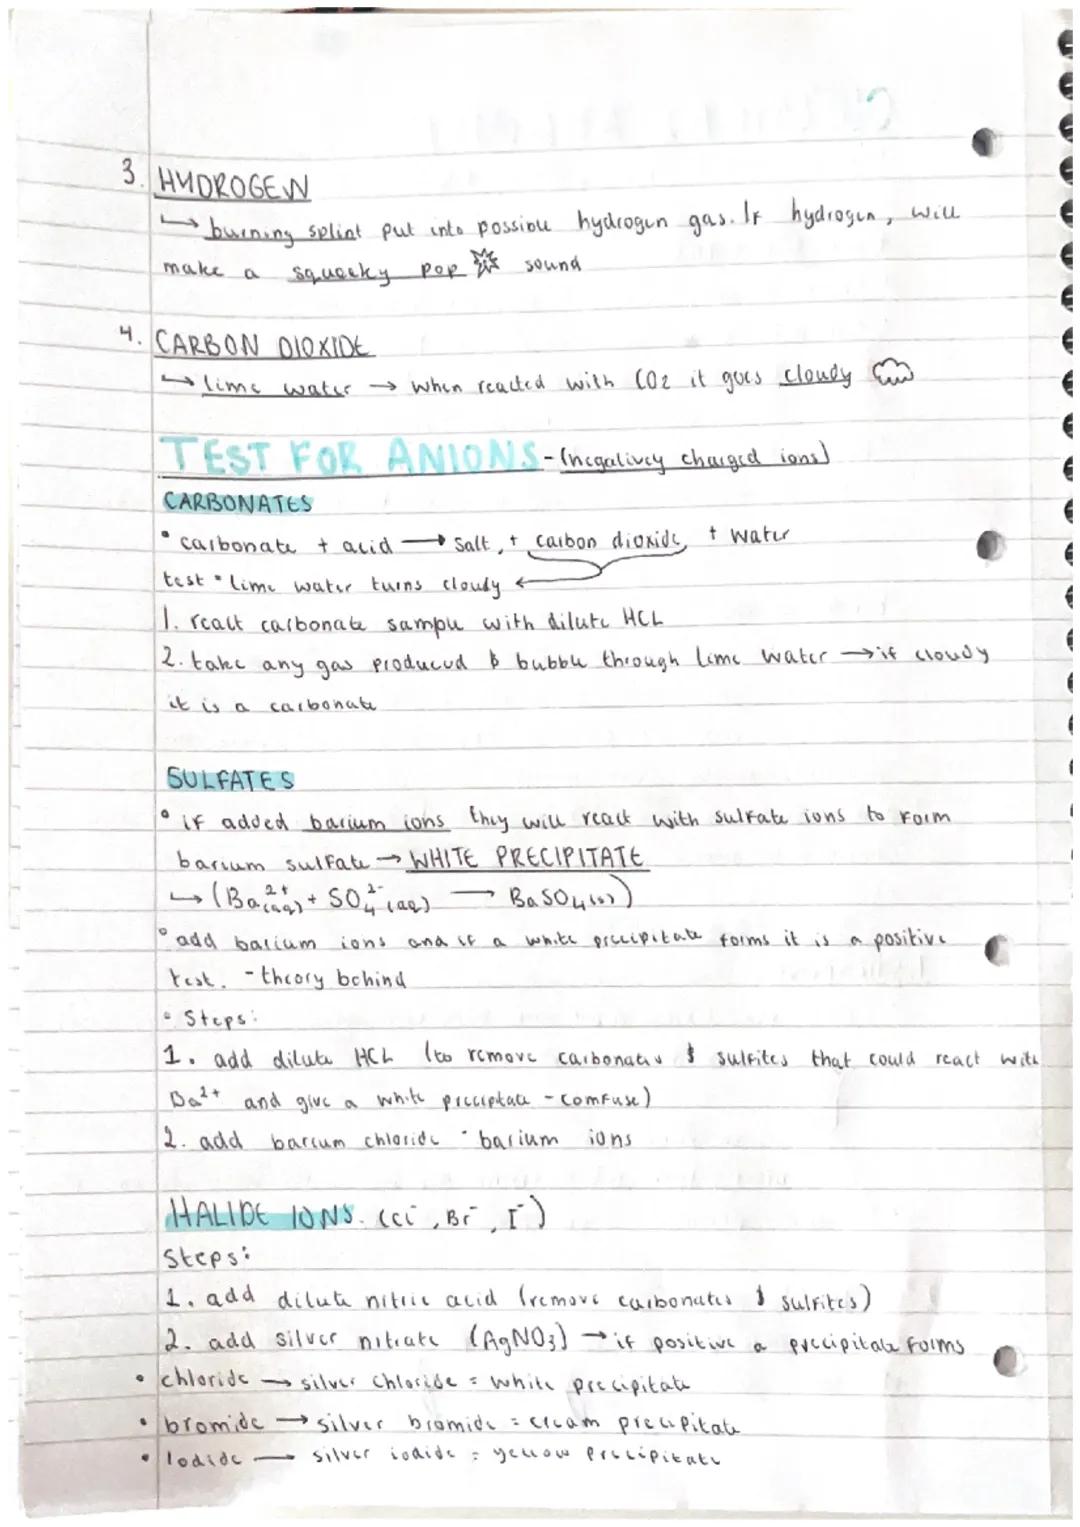 3. HYDROGEN
↳ burning splint put into possible hydrogen gas. If hydrogen, will
make a squeeky pop sound
4. CARBON DIOXIDE
↳ lime water → when reacted with CO2 it goes cloudy
TEST FOR ANIONS - (negativey charged ions)
CARBONATES
• carbonate + acid → salt + carbon dioxide + water
test • lime water turns cloudy ←
1. react carbonate sample with dilute HCL
2. take any gas produced & bubble through lime water → if cloudy
it is a carbonate
SULFATES
• if added barium ions they will react with sulfate ions to form
barium sulfate → WHITE PRECIPITATE
↳ (Ba²⁺(aq) + SO₄²⁻(aq) → BaSO₄(s))
• add barium ions and if a white precipitate forms it is a positive
test. - theory behind
• Steps:
1. add dilute HCL (to remove carbonates & sulfites that could react with
Ba²⁺ and give a white preciptate - comfuse)
2. add barium chloride • barium ions
HALIDE IONS. (Cl⁻, Br⁻, I⁻)
Steps:
1. add dilute nitric acid (remove carbonates & sulfites)
2. add silver nitrate (AgNO₃) → if positive a precipitate forms
• chloride → silver chloride = white precipitate
• bromide → silver bromide = cream precipitate
• Iodide → silver iodide = yellow precipitate